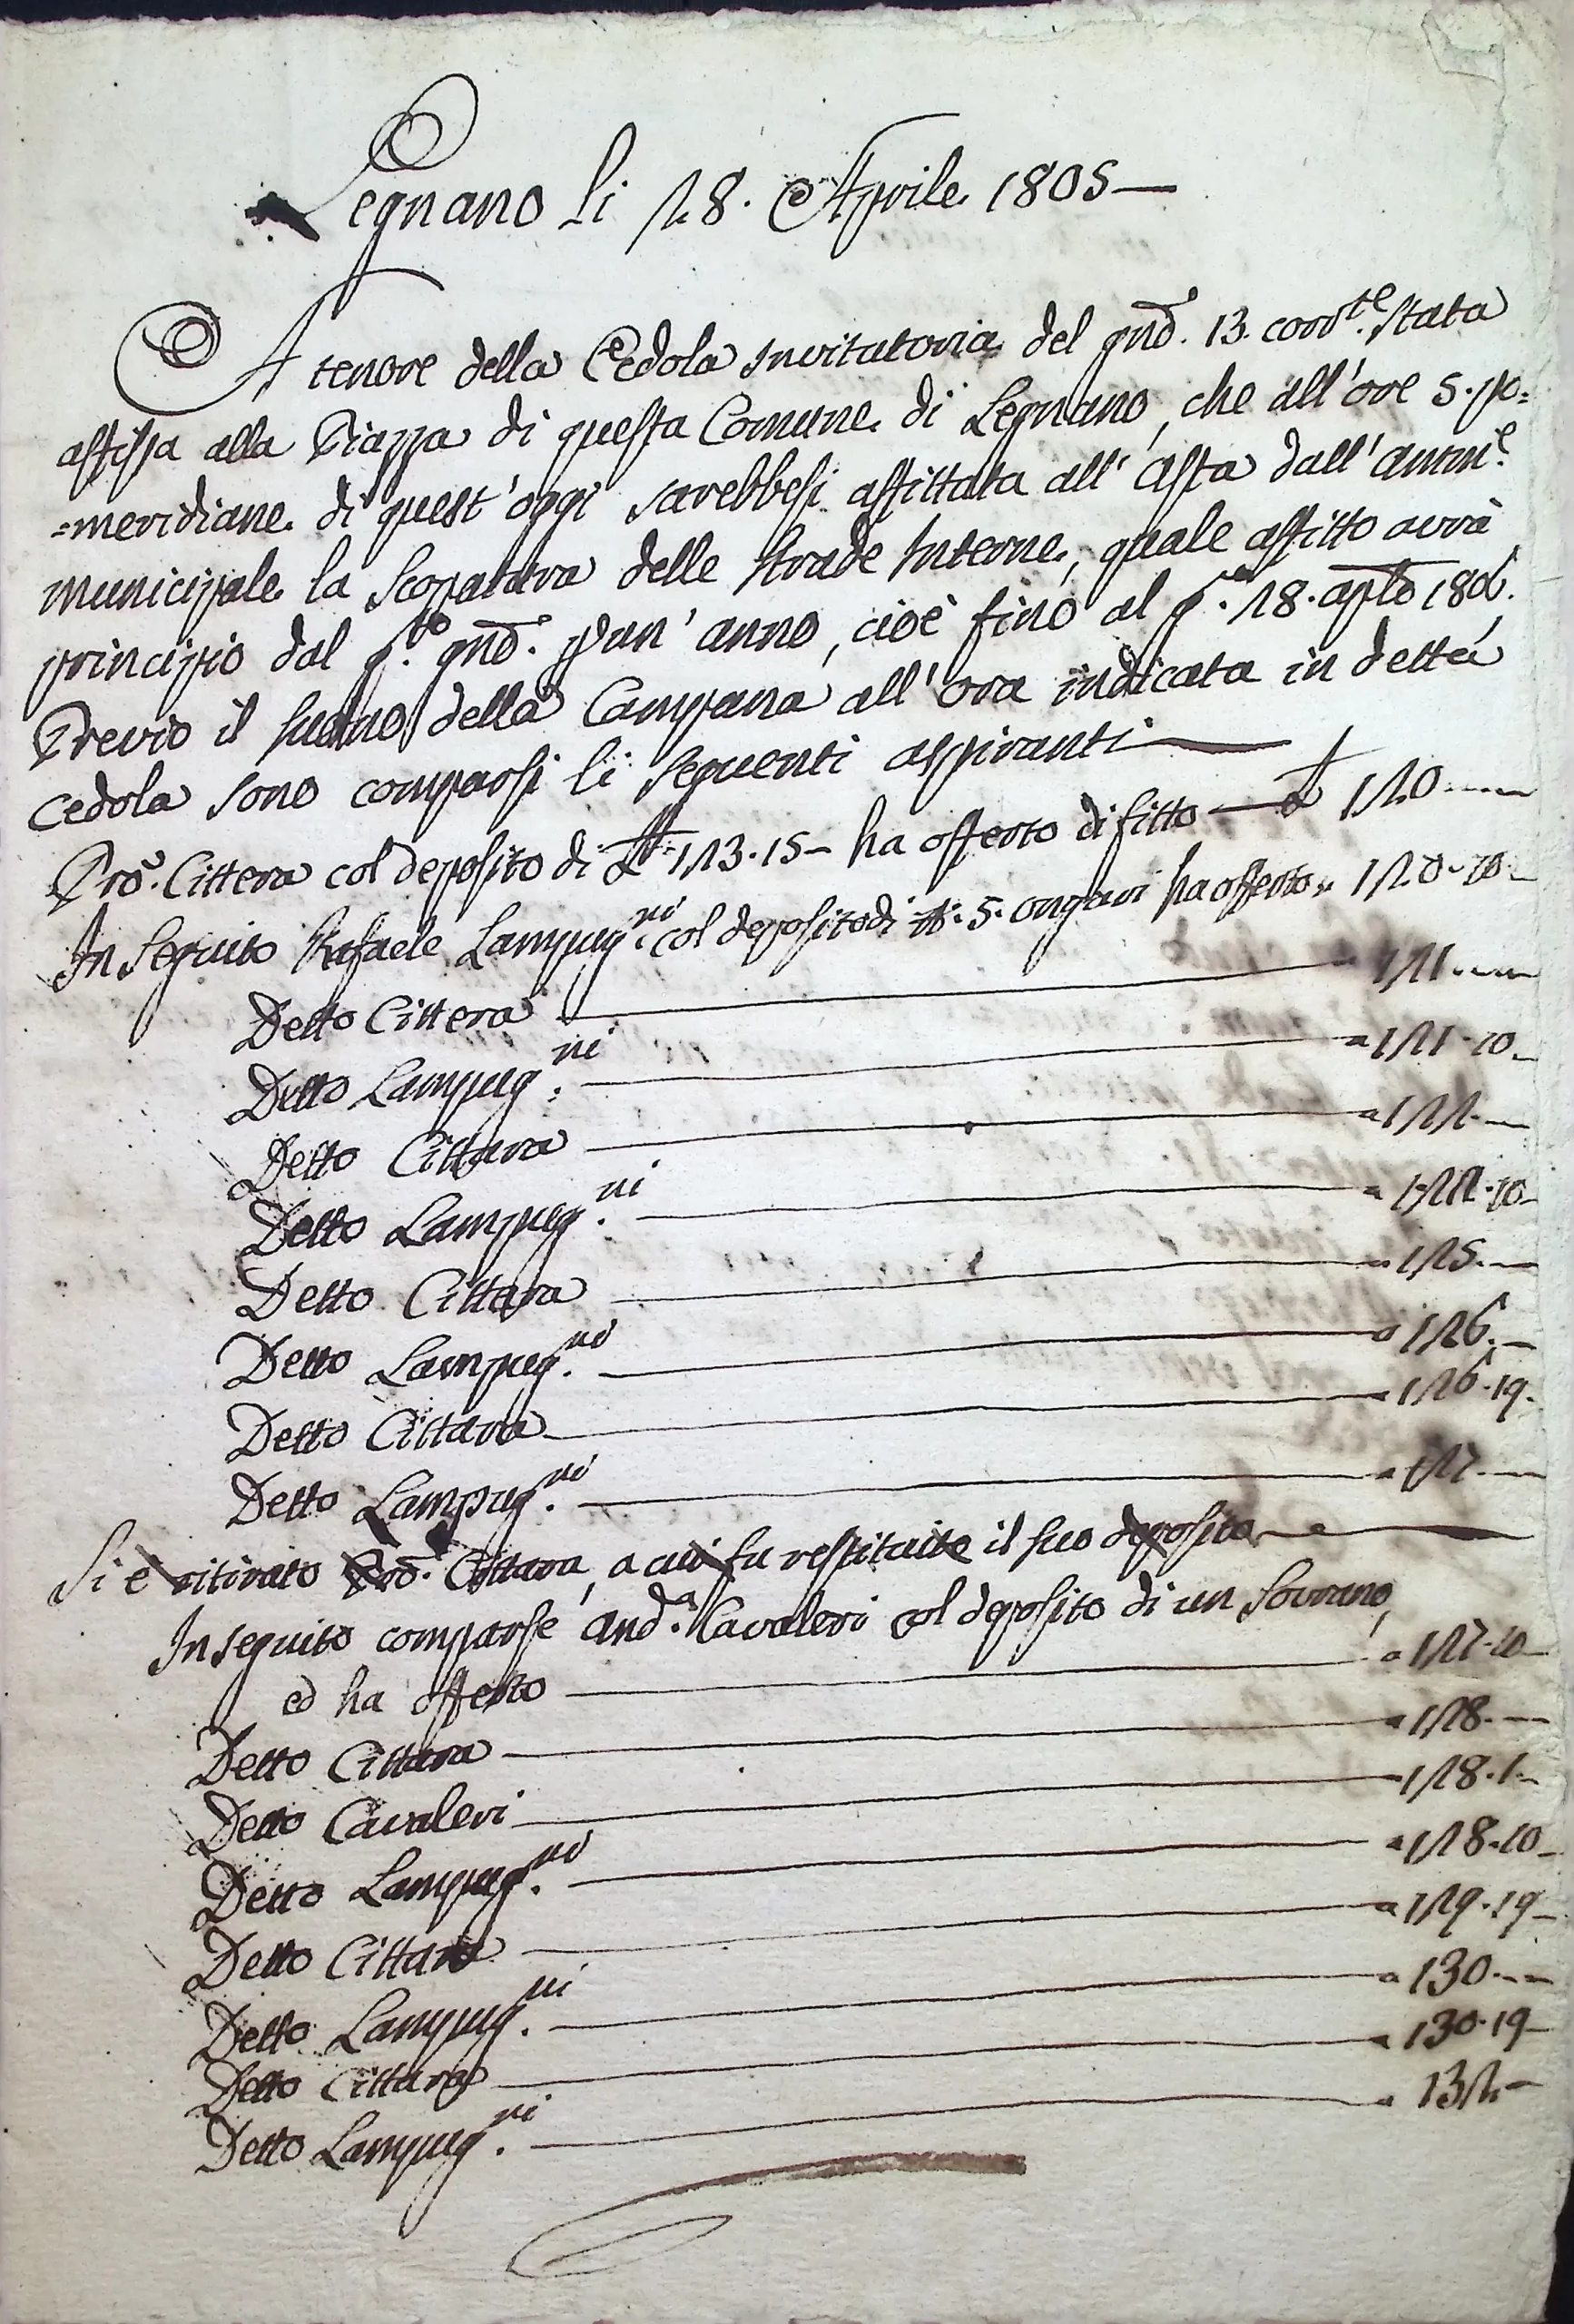 Legnano li 28. Aprile 1805
A tenore della Cedola Invitatoria del gnō. 13. corr.te stata
affissa alla Piazza di questa Comune di Legnano, che all'ore 5. po=
=meridiane di quest'oggi sarebbesi affittata all'Asta dall'Amm.e
municipale la Scopatura delle strade Interne, quale affitto avrà
principio dal gnō. p un'anno, cioè fino al 28. aple 1806.
Previo il suono della Campana all'ora indicata in detta
cedola sono comparsi li seguenti aspiranti
Pro. Cittera col deposito di 123.15 ha offerto di fitto 120
In Seguito Rafaele Lampug.ni col deposito di 5. ongari ha offerto 120.10
Detto Cittera 121
Detto Lampug.ni 121.10
Detto Cittara 122
Detto Lampug.ni 122.10
Detto Cittara 125
Detto Lampug.ni 126
Detto Cittara 126.19
Detto Lampug.ni 127
Si è ritirato Pro. Cittara, a cui fu restituite il suo deposito
In seguito comparse And.a Cavaleri col deposito di un Sovrano,
ed ha offerto 127.10
Detto Cittara 128
Detto Cavaleri 128.1
Detto Lampug.ni 128.10
Detto Cittara 129.19
Detto Lampug.ni 130
Detto Cittara 130.19
Detto Lampug.ni 132